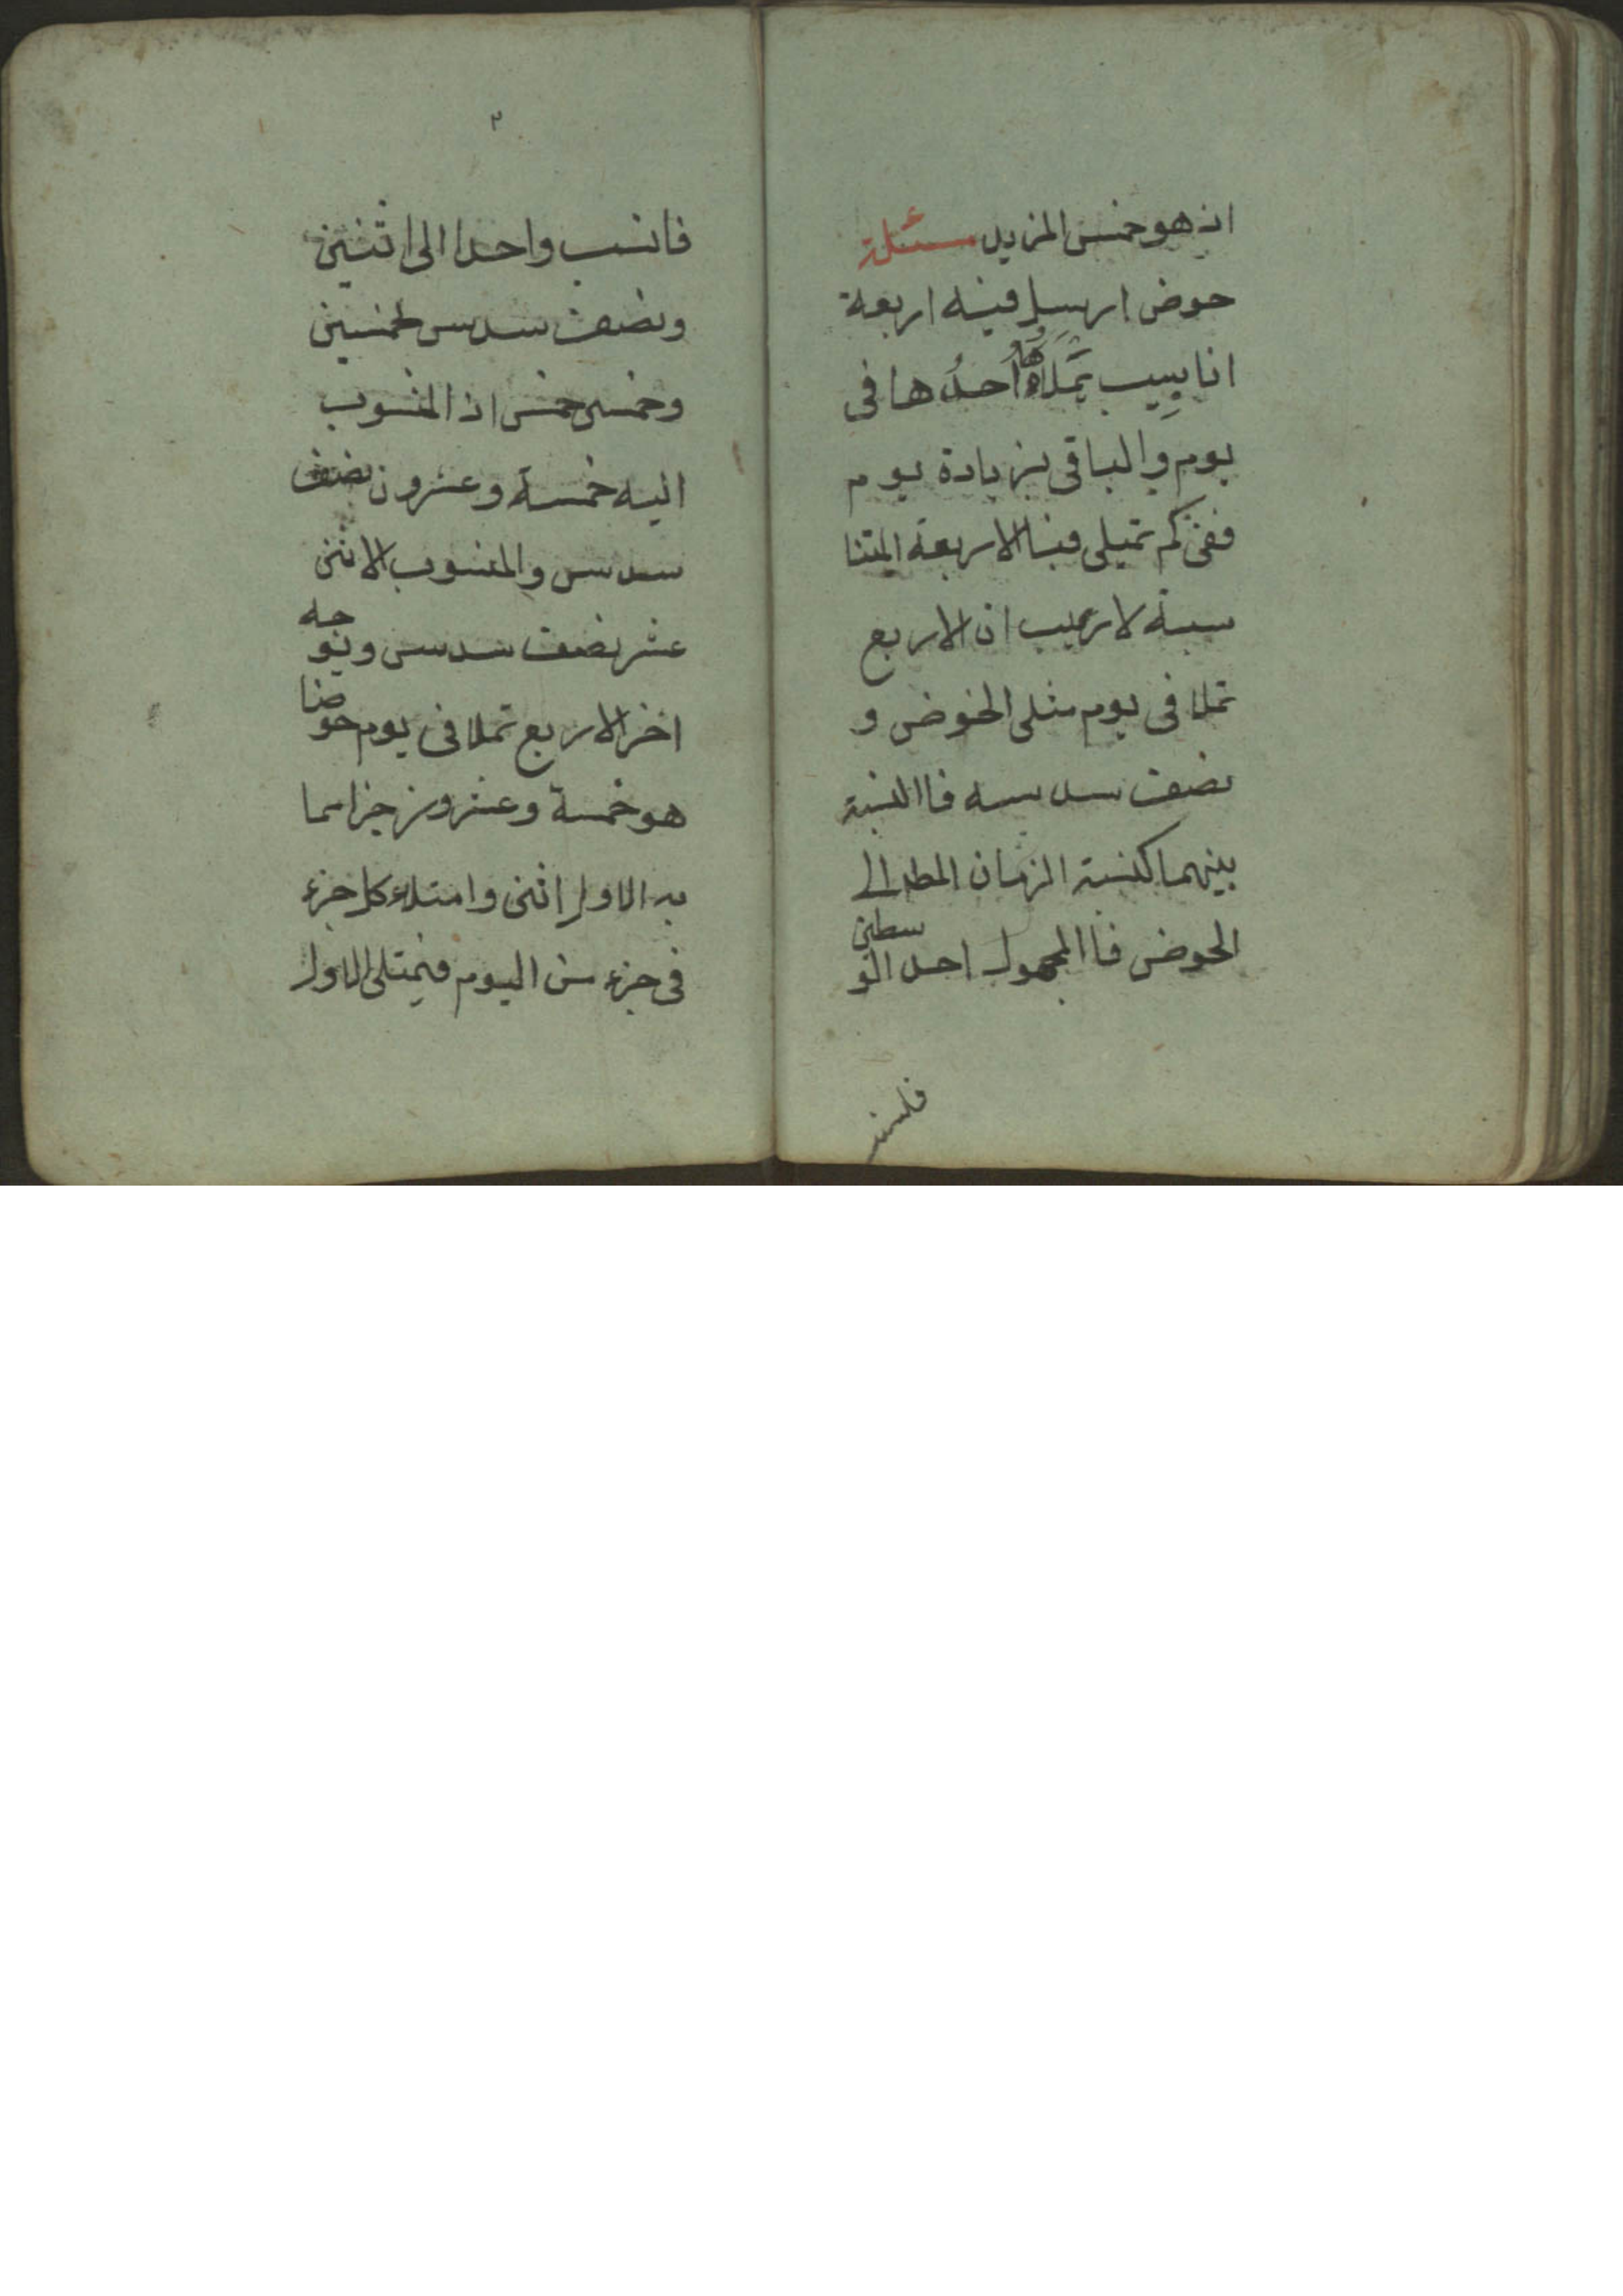 اذ هو خمس المزيد مسئلة
حوض ارسل فيه اربعة
انابيب تملاه احدها في
يوم والباقي بزيادة يوم
ففي كم تمتلى فبا الاربعة المتنا
سبة لا ريب ان الاربع
تملا في يوم مثلى الحوض و
نصف سدسه فاالنسبة
بينهما كنسبة الزمان المطم الى
الحوض فاالمجهول احد الوسطين
فلننسب
٣
فانسب واحدا الى اثنين
ونصف سدس بخمسين
وخمسى خمس اذ المنسوب
اليه خمسة وعشرون نصف
سدس والمنسوب الاثنى
عشر نصف سدس وبوجه
اخر الاربع تملا في يوم حوضا
هو خمسة وعشرون جزا مما
به الاول اثنى وامتلاء كل جزء
في جزء من اليوم فيمتلى الاول